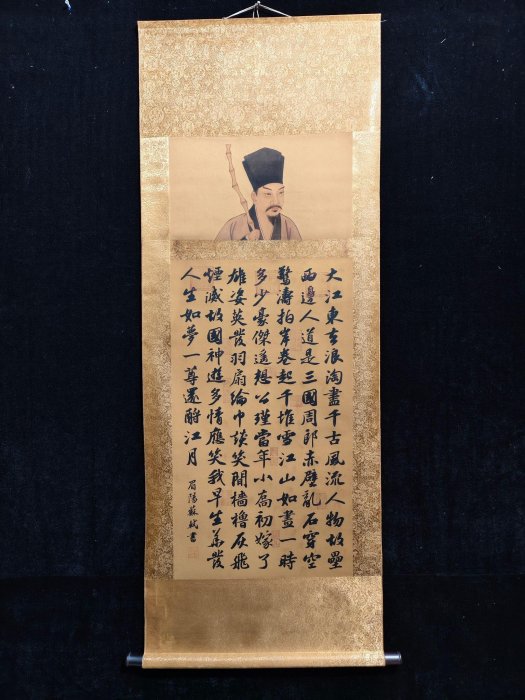 大江東去浪淘盡千古風流人物故壘
西邊人道是三國周郎赤壁亂石穿空
驚濤拍岸卷起千堆雪江山如畫一時
多少豪傑遙想公瑾當年小喬初嫁了
雄姿英發羽扇綸巾談笑間檣櫓灰飛
煙滅故國神遊多情應笑我早生華發
人生如夢一尊還酹江月
眉陽蘇軾書